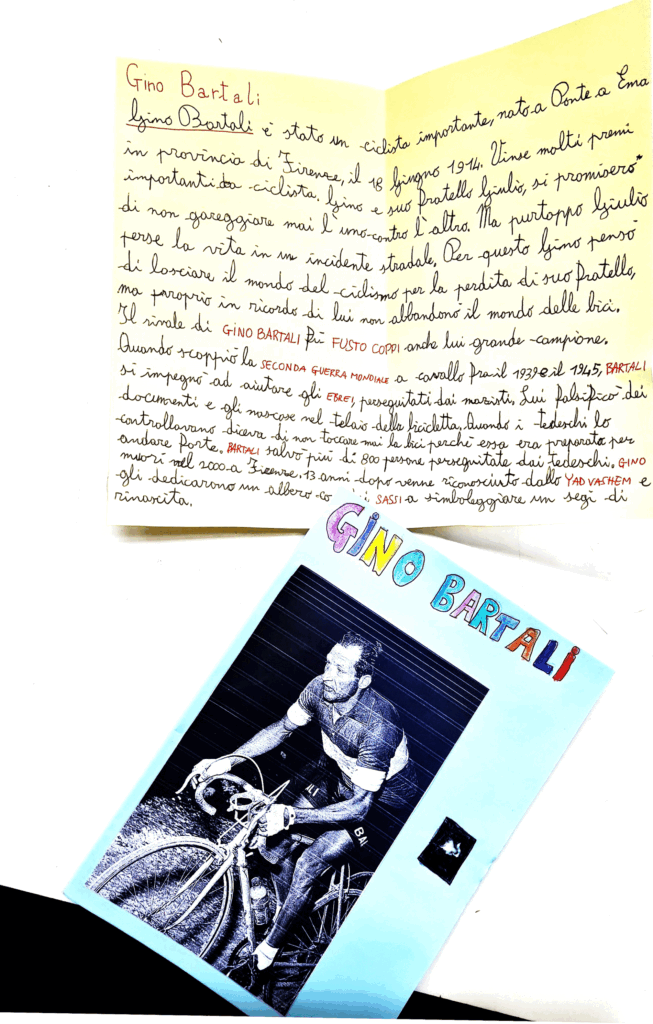 Gino Bartali
Gino Bartali è stato un ciclista importante, nato a Ponte a Ema
in provincia di Firenze, il 18 Giugno 1914. Vinse molti premi
importanti da ciclista. Gino e suo fratello Giulio, si promisero
di non gareggiare mai l'uno contro l'altro. Ma purtoppo Giulio
perse la vita in un incidente stradale. Per questo Gino pensò
di lasciare il mondo del ciclismo per la perdita di suo fratello,
ma proprio in ricordo di lui non abbandonò il mondo delle bici.
Il rivale di GINO BARTALI fu FUSTO COPPI anche lui grande campione.
Quando scoppiò la SECONDA GUERRA MONDIALE a cavallo fra il 1939 e il 1945, BARTALI
si impegnò ad aiutare gli EBREI, perseguitati dai nazisti. Lui falsificò dei
documenti e gli nascose nel telaio della bicicletta. Quando i tedeschi lo
controllavano diceva di non toccare mai la bici perchè essa era preparata per
andare forte. BARTALI salvò più di 800 persone perseguitate dai tedeschi. GINO
muorì nel 2000 a Firenze. 13 anni dopo venne riconosciuto dallo YAD VASHEM e
gli dedicarono un albero co SASSI a simboleggiare un segi di
rinascita.
GINO BARTALI
ILI
BAI